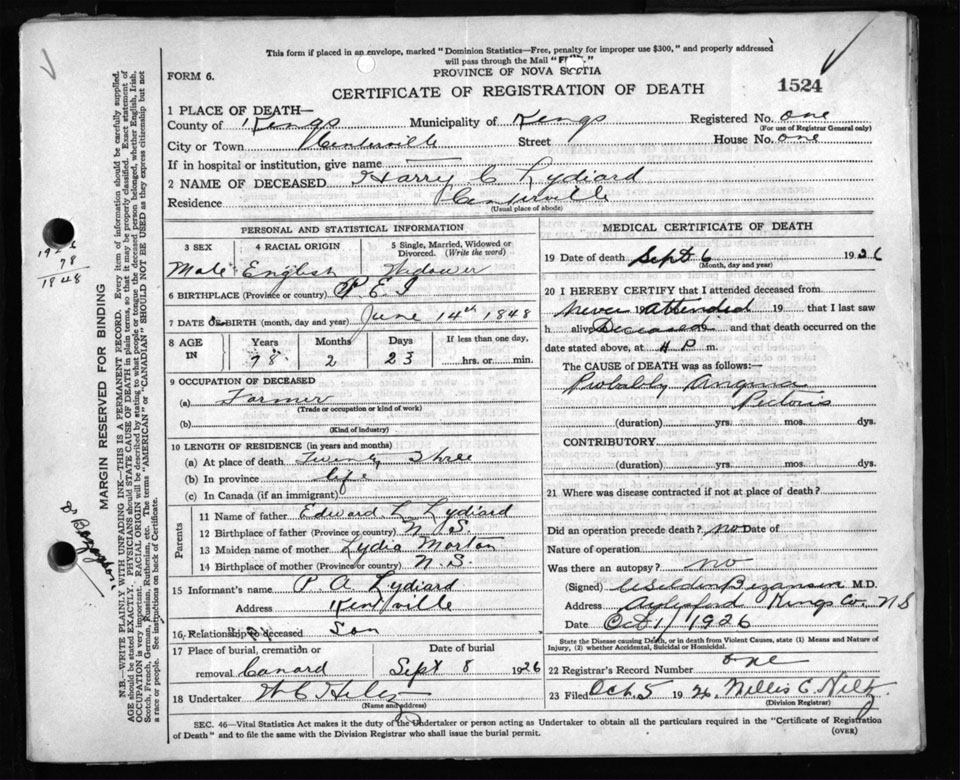 This form if placed in an envelope, marked "Dominion Statistics—Free, penalty for improper use $300," and properly addressed
will pass through the Mail
PROVINCE OF NOVA SCOTIA
FORM 6.
1524
CERTIFICATE OF REGISTRATION OF DEATH
1 PLACE OF DEATH—
County of Kings Municipality of Kings Registered No. one
(For use of Registrar General only)
City or Town Centerville Street House No. one
If in hospital or institution, give name
2 NAME OF DECEASED Harry C Lydiard
Residence Centerville
(Usual place of abode)
PERSONAL AND STATISTICAL INFORMATION
3 SEX 4 RACIAL ORIGIN 5 Single, Married, Widowed or
Divorced. (Write the word)
Male English Widower
6 BIRTHPLACE (Province or country) P. E. I
7 DATE OF BIRTH (month, day and year) June 14th 1848
8 AGE IN Years Months Days If less than one day,
78 2 23 hrs. or min.
9 OCCUPATION OF DECEASED
(a) Farmer
(Trade or occupation or kind of work)
(b)
(Kind of industry)
10 LENGTH OF RESIDENCE (in years and months)
(a) At place of death Twenty three
(b) In province life
(c) In Canada (if an immigrant)
Parents
11 Name of father Edward L Lydiard
12 Birthplace of father (Province or country) N. S.
13 Maiden name of mother Lydia Morton
14 Birthplace of mother (Province or country) N. S.
15 Informant's name P. A Lydiard
Address Kentville
16 Relationship to deceased Son
17 Place of burial, cremation or Date of burial
removal Canard Sept 8 1926
18 Undertaker
(Name and address)
MEDICAL CERTIFICATE OF DEATH
19 Date of death Sept 6 1926
(Month, day and year)
20 I HEREBY CERTIFY that I attended deceased from
Never 19 Attended 19 that I last saw
h alive Deceased and that death occurred on the
date stated above, at 4 P m.
The CAUSE of DEATH was as follows:—
Probably Angina
Pectoris
(duration) yrs. mos. dys.
CONTRIBUTORY
(duration) yrs. mos. dys.
21 Where was disease contracted if not at place of death?
Did an operation precede death? no Date of
Nature of operation
Was there an autopsy? no
(Signed) Bezanson M.D.
Address Aylesford Kings Co. N S
Date Oct 1/1926
State the Disease causing Death, or in death from Violent Causes, state (1) Means and Nature of
Injury, (2) whether Accidental, Suicidal or Homicidal.
22 Registrar's Record Number one
23 Filed Oct. 5 1926
(Division Registrar)
SEC. 46—Vital Statistics Act makes it the duty of the Undertaker or person acting as Undertaker to obtain all the particulars required in the "Certificate of Registration
of Death" and to file the same with the Division Registrar who shall issue the burial permit.
(OVER)
1926
78
1848
MARGIN RESERVED FOR BINDING
Dr Bezanson
N.B.—WRITE PLAINLY WITH UNFADING INK—THIS IS A PERMANENT RECORD. Every item of information should be carefully supplied.
AGE should be stated EXACTLY. PHYSICIANS should STATE CAUSE OF DEATH in plain terms, so that it may be properly classified. Exact statement of
OCCUPATION is very important. RACIAL ORIGIN will be described by stating to what people or tongue the deceased person belonged, whether English, Irish,
Scotch, French, German, Russian, Ruthenian, etc. The terms "AMERICAN" or "CANADIAN" SHOULD NOT BE USED as they express citizenship but not
a race or people. See instructions on back of Certificate.